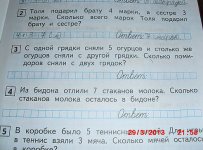 2 Толя подарил брату 4 марки, а сестре 3
марки. Сколько всего марок Толя подарил
брату и сестре?
Ответ: 7 марок
3 С одной грядки сняли 5 огурцов и столько же
огурцов сняли с другой грядки. Сколько поми-
доров сняли с двух грядок?
Ответ:
4 Из бидона отлили 7 стаканов молока. Сколько
стаканов молока осталось в бидоне?
Ответ:
5 В коробке было 5 теннисных Для
в теннис взяли 3 мяча. Сколько мячей осталось
в коробке?
29/3/2013 21:58